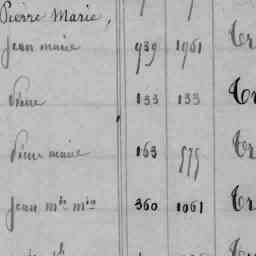 Pierre Marie,
Jean marie 939 1961 Tr
Pierre 133 133 Tr
Pierre marie 163 575 Tr
Jean m^ie m^in 360 1061 Tr